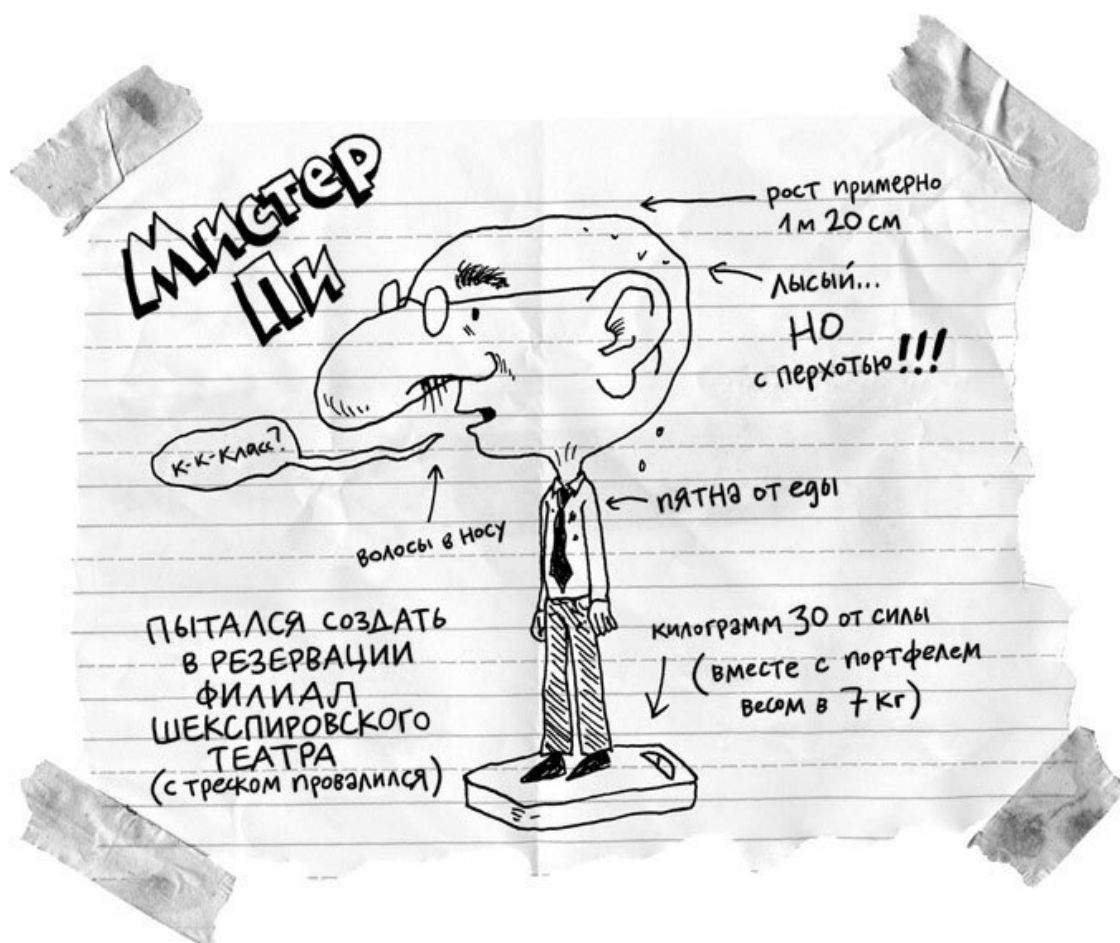 Мистер
Пи
рост примерно
1 м 20 см
лысый...
НО
с перхотью!!!
к-к-класс?
волосы в носу
пятна от еды
ПЫТАЛСЯ СОЗДАТЬ
В РЕЗЕРВАЦИИ
ФИЛИАЛ
ШЕКСПИРОВСКОГО
ТЕАТРА
(с треском провалился)
килограмм 30 от силы
(вместе с портфелем
весом в 7 кг)